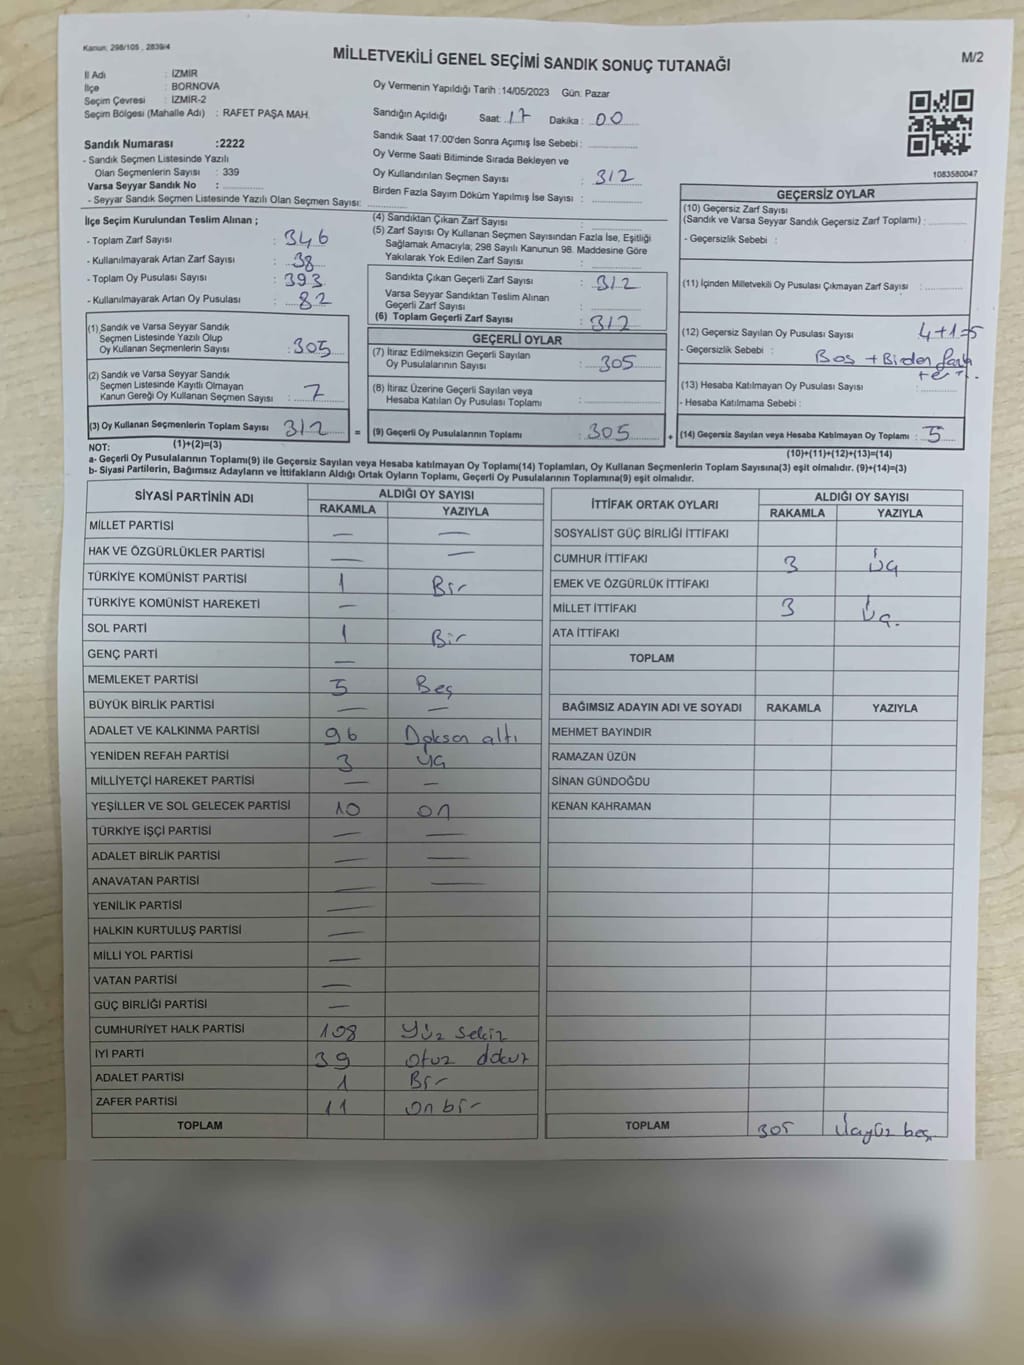 Kanun: 298/105 , 2839/4
MİLLETVEKİLİ GENEL SEÇİMİ SANDIK SONUÇ TUTANAĞI
M/2
İl Adı : İZMİR
İlçe : BORNOVA
Seçim Çevresi : İZMİR-2
Seçim Bölgesi (Mahalle Adı) : RAFET PAŞA MAH.
Sandık Numarası :2222
- Sandık Seçmen Listesinde Yazılı
Olan Seçmenlerin Sayısı : 339
Varsa Seyyar Sandık No :
- Seyyar Sandık Seçmen Listesinde Yazılı Olan Seçmen Sayısı:
Oy Vermenin Yapıldığı Tarih :14/05/2023 Gün: Pazar
Sandığın Açıldığı Saat: 17 Dakika : 00
Sandık Saat 17:00'den Sonra Açımış İse Sebebi :
Oy Verme Saati Bitiminde Sırada Bekleyen ve
Oy Kullandırılan Seçmen Sayısı : 312
Birden Fazla Sayım Döküm Yapılmış İse Sayısı :
1083580047
İlçe Seçim Kurulundan Teslim Alınan ;
- Toplam Zarf Sayısı : 346
- Kullanılmayarak Artan Zarf Sayısı : 38
- Toplam Oy Pusulası Sayısı : 393
- Kullanılmayarak Artan Oy Pusulası : 82
(1) Sandık ve Varsa Seyyar Sandık
Seçmen Listesinde Yazılı Olup
Oy Kullanan Seçmenlerin Sayısı : 305
(2) Sandık ve Varsa Seyyar Sandık
Seçmen Listesinde Kayıtlı Olmayan
Kanun Gereği Oy Kullanan Seçmen Sayısı : 7
(3) Oy Kullanan Seçmenlerin Toplam Sayısı 312 =
(4) Sandıktan Çıkan Zarf Sayısı :
(5) Zarf Sayısı Oy Kullanan Seçmen Sayısından Fazla İse, Eşitliği
Sağlamak Amacıyla; 298 Sayılı Kanunun 98. Maddesine Göre
Yakılarak Yok Edilen Zarf Sayısı :
Sandıkta Çıkan Geçerli Zarf Sayısı : 312
Varsa Seyyar Sandıktan Teslim Alınan
Geçerli Zarf Sayısı :
(6) Toplam Geçerli Zarf Sayısı : 312
GEÇERLİ OYLAR
(7) İtiraz Edilmeksizin Geçerli Sayılan
Oy Pusulalarının Sayısı : 305
(8) İtiraz Üzerine Geçerli Sayılan veya
Hesaba Katılan Oy Pusulası Toplamı :
(9) Geçerli Oy Pusulalarının Toplamı : 305 +
GEÇERSİZ OYLAR
(10) Geçersiz Zarf Sayısı
(Sandık ve Varsa Seyyar Sandık Geçersiz Zarf Toplamı) :
- Geçersizlik Sebebi :
(11) İçinden Milletvekili Oy Pusulası Çıkmayan Zarf Sayısı :
(12) Geçersiz Sayılan Oy Pusulası Sayısı 4+1=5
- Geçersizlik Sebebi : Boş + Birden fazla
(13) Hesaba Katılmayan Oy Pusulası Sayısı :
- Hesaba Katılmama Sebebi :
(14) Geçersiz Sayılan veya Hesaba Katılmayan Oy Toplamı : 5
NOT: (1)+(2)=(3)
(10)+(11)+(12)+(13)=(14)
a- Geçerli Oy Pusulalarının Toplamı(9) ile Geçersiz Sayılan veya Hesaba katılmayan Oy Toplamı(14) Toplamları, Oy Kullanan Seçmenlerin Toplam Sayısına(3) eşit olmalıdır. (9)+(14)=(3)
b- Siyasi Partilerin, Bağımsız Adayların ve İttifakların Aldığı Ortak Oyların Toplamı, Geçerli Oy Pusulalarının Toplamına(9) eşit olmalıdır.
SİYASİ PARTİNİN ADI ALDIĞI OY SAYISI
RAKAMLA YAZIYLA
MİLLET PARTİSİ — —
HAK VE ÖZGÜRLÜKLER PARTİSİ — —
TÜRKİYE KOMÜNİST PARTİSİ 1 Bir
TÜRKİYE KOMÜNİST HAREKETİ —
SOL PARTİ 1 Bir
GENÇ PARTİ —
MEMLEKET PARTİSİ 5 Beş
BÜYÜK BİRLİK PARTİSİ — —
ADALET VE KALKINMA PARTİSİ 96 Doksan altı
YENİDEN REFAH PARTİSİ 3 üç
MİLLİYETÇİ HAREKET PARTİSİ — —
YEŞİLLER VE SOL GELECEK PARTİSİ 10 on
TÜRKİYE İŞÇİ PARTİSİ — —
ADALET BİRLİK PARTİSİ — —
ANAVATAN PARTİSİ — —
YENİLİK PARTİSİ —
HALKIN KURTULUŞ PARTİSİ —
MİLLİ YOL PARTİSİ —
VATAN PARTİSİ —
GÜÇ BİRLİĞİ PARTİSİ —
CUMHURİYET HALK PARTİSİ 108 Yüz sekiz
İYİ PARTİ 39 otuz dokuz
ADALET PARTİSİ 1 Bir
ZAFER PARTİSİ 11 on bir
TOPLAM
İTTİFAK ORTAK OYLARI ALDIĞI OY SAYISI
RAKAMLA YAZIYLA
SOSYALİST GÜÇ BİRLİĞİ İTTİFAKI
CUMHUR İTTİFAKI 3 üç
EMEK VE ÖZGÜRLÜK İTTİFAKI
MİLLET İTTİFAKI 3 Üç.
ATA İTTİFAKI
TOPLAM
BAĞIMSIZ ADAYIN ADI VE SOYADI RAKAMLA YAZIYLA
MEHMET BAYINDIR
RAMAZAN ÜZÜN
SİNAN GÜNDOĞDU
KENAN KAHRAMAN
TOPLAM 305 Üçyüz beş